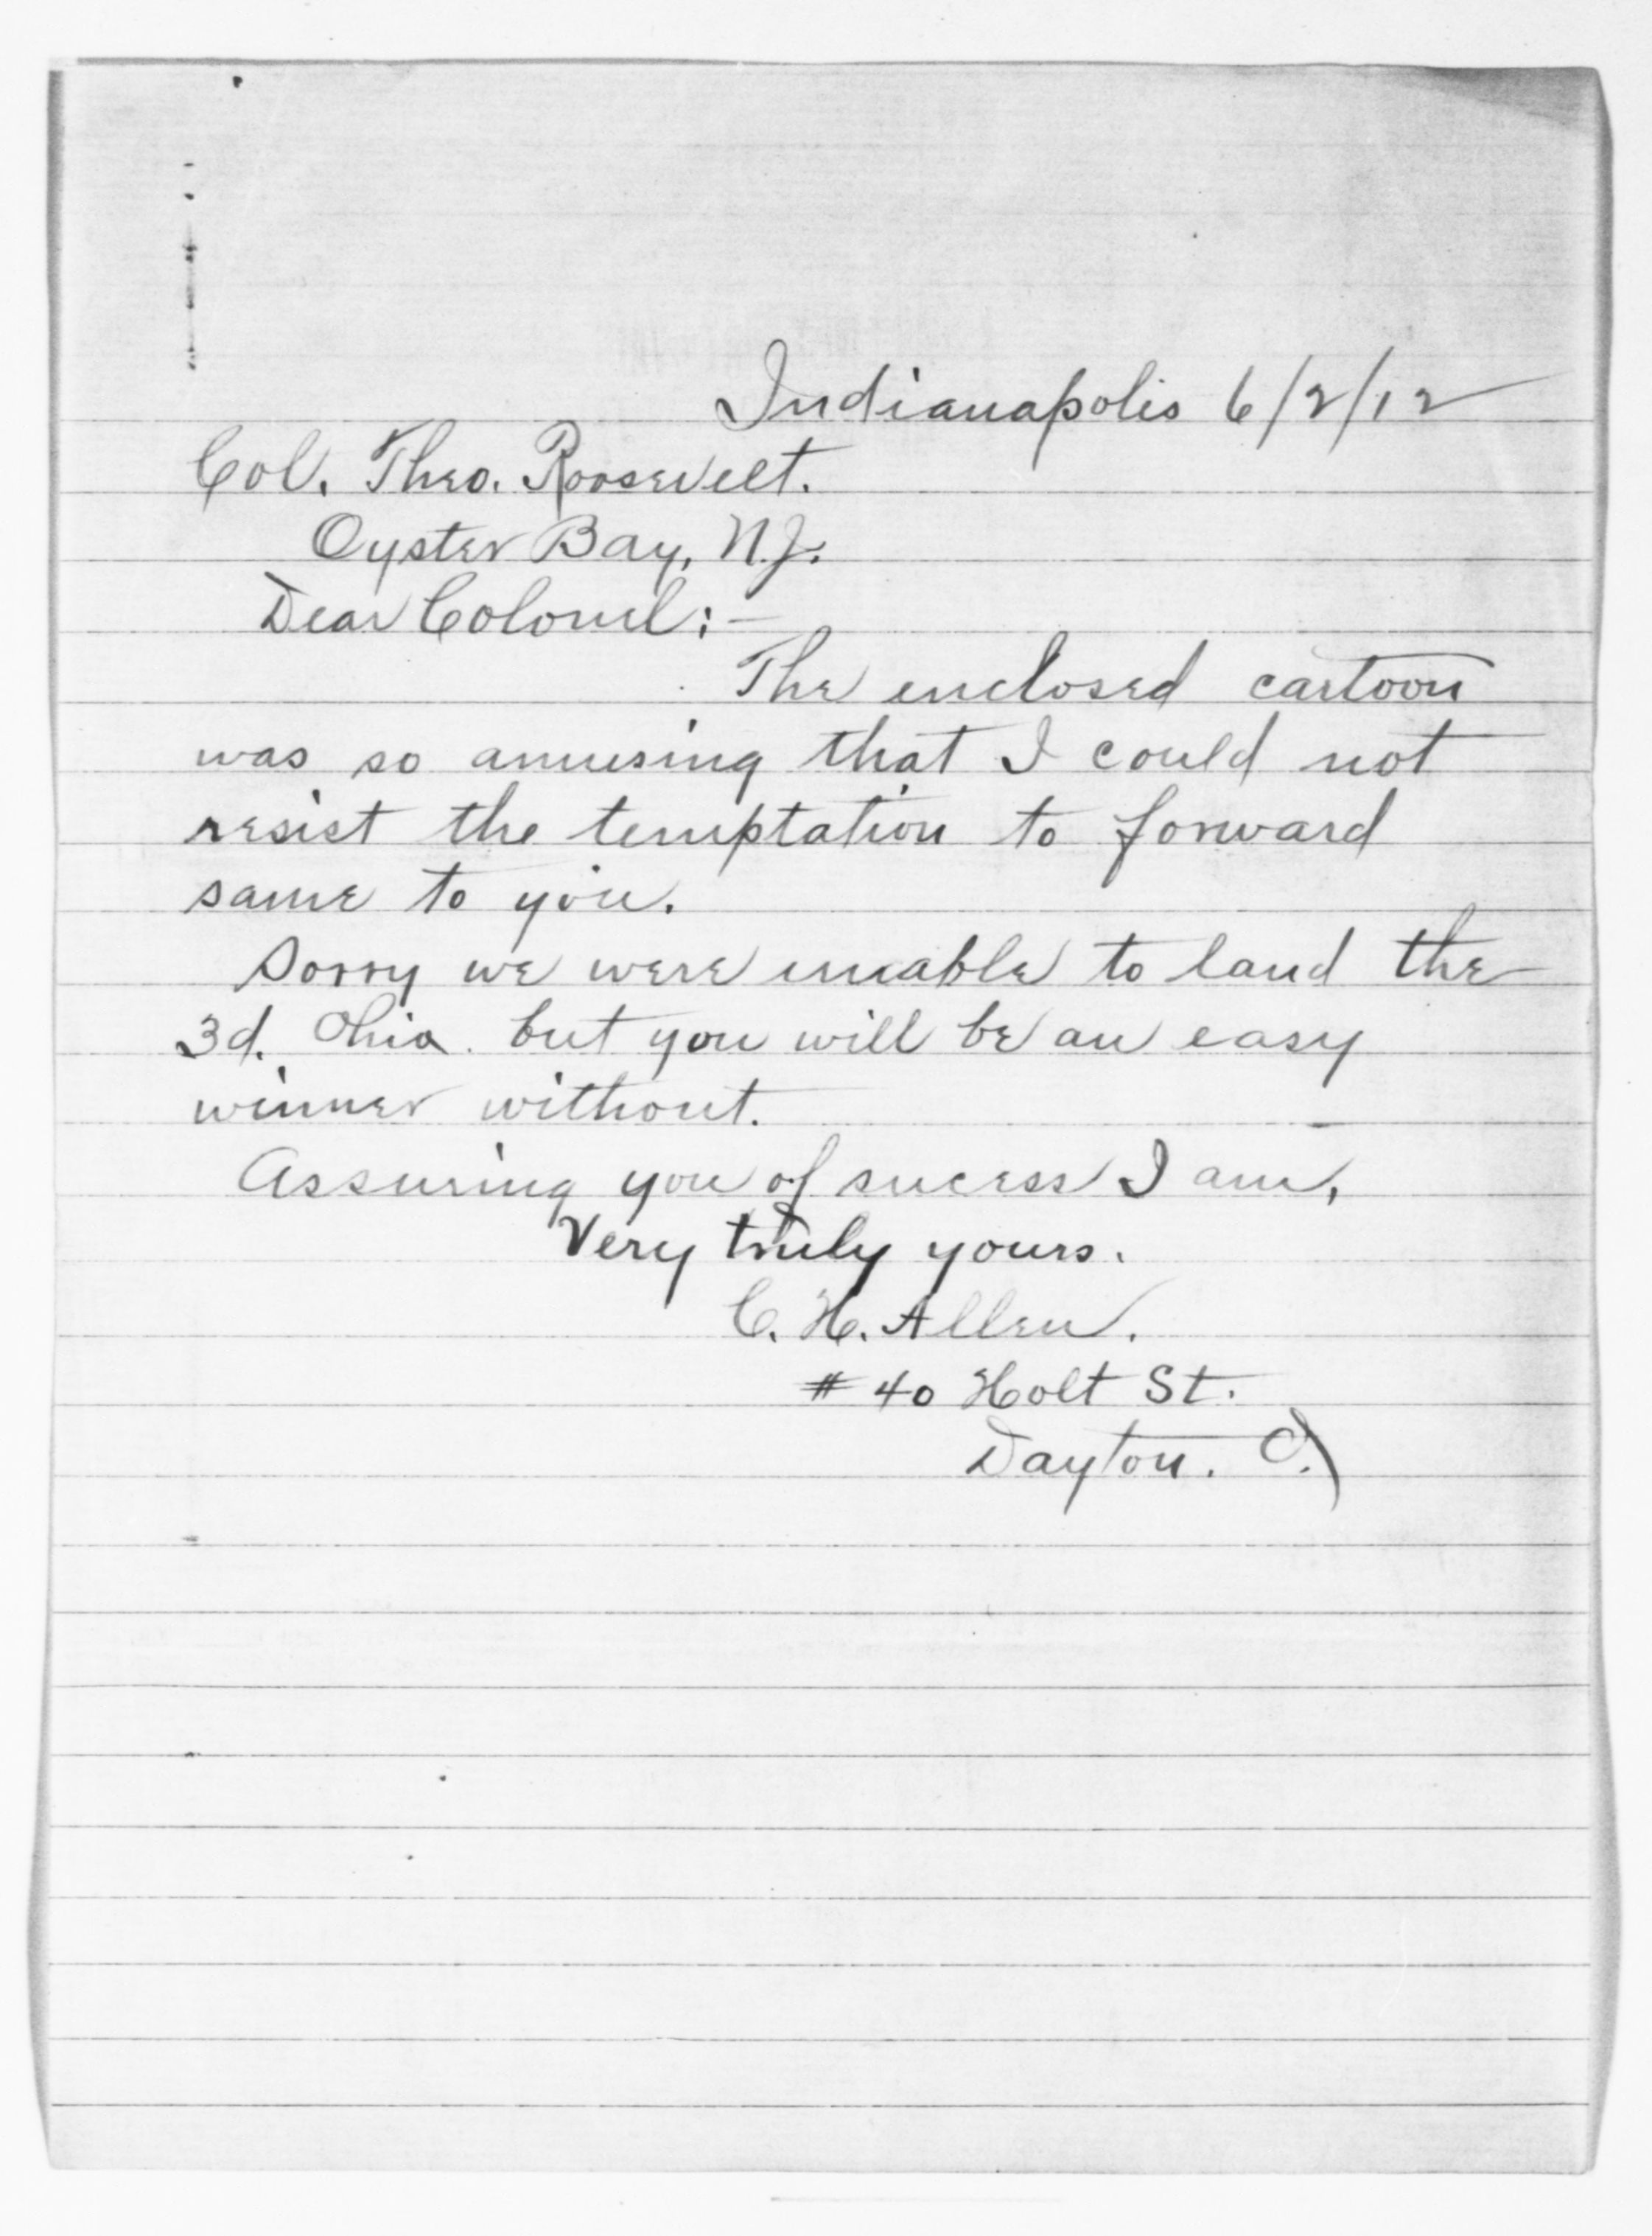 Indianapolis 6/2/12
Col. Theo. Roosevelt.
Oyster Bay, N.J.
Dear Colonel:-
The enclosed cartoon
was so amusing that I could not
resist the temptation to forward
same to you.
Sorry we were unable to land the
3d. Ohio. but you will be an easy
winner without.
Assuring you of sucess I am,
Very truly yours.
C. H. Allen.
# 40 Holt St.
Dayton. O.